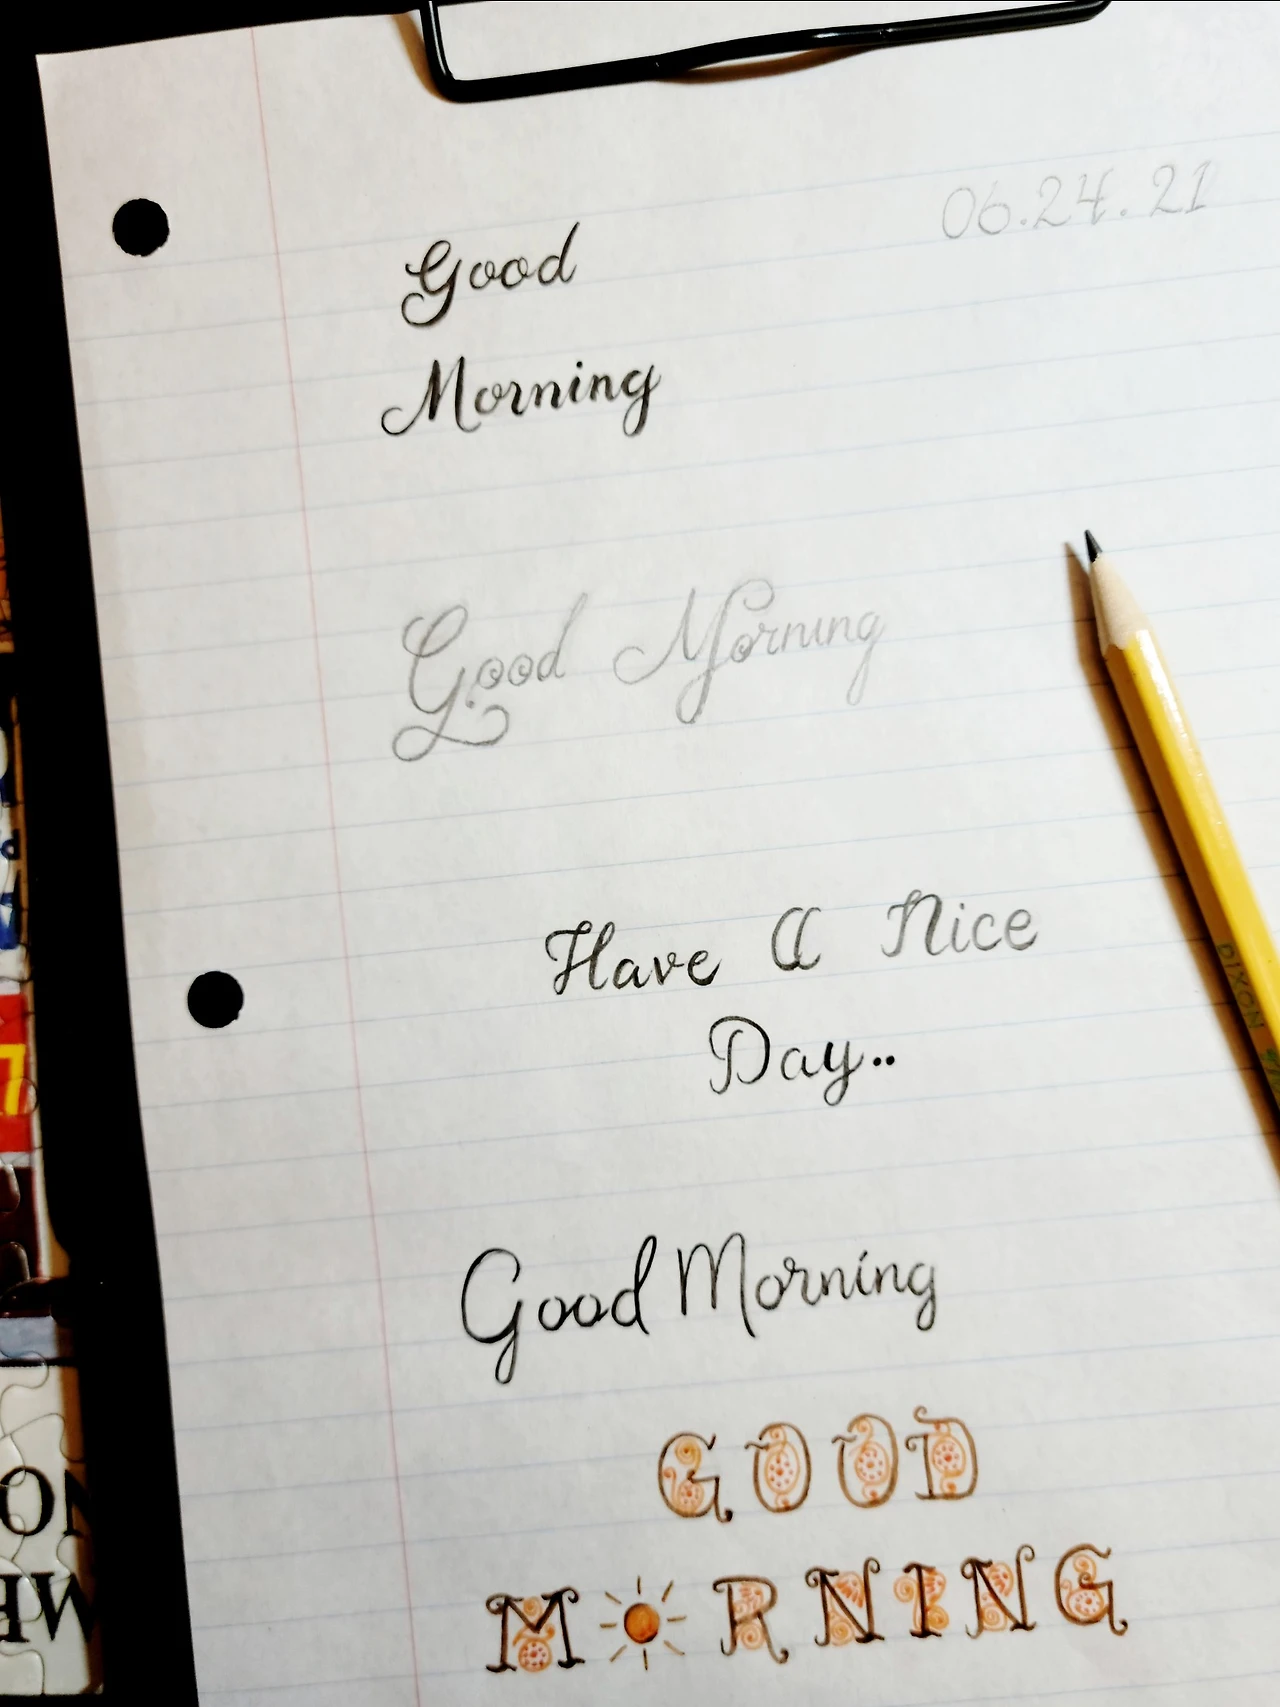 06.24.21
Good
Morning
Good Morning
Have a Nice
Day..
Good Morning
GOOD
MORNING
DIXON
7